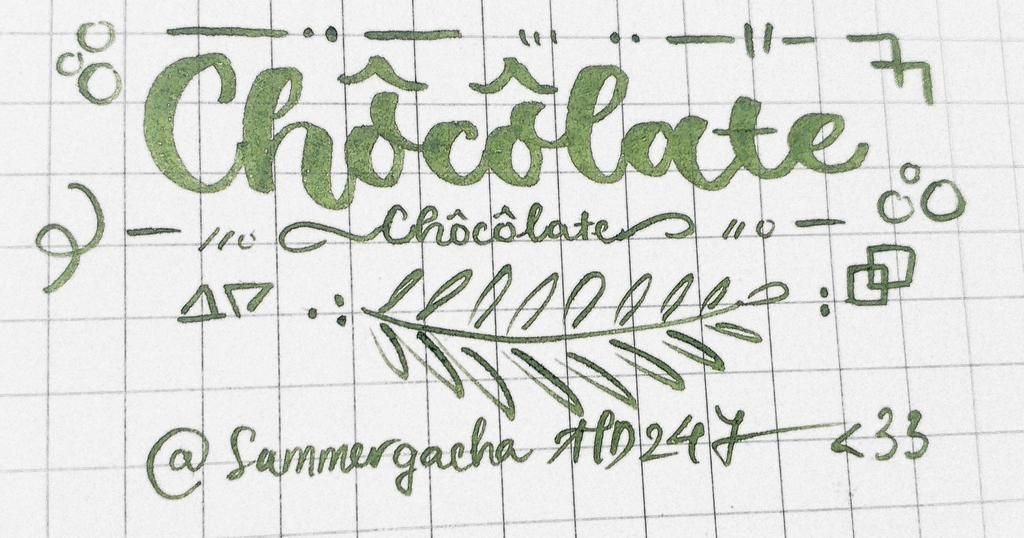 Chôcôlate
Chôcôlate
@Summergacha HD247 <33